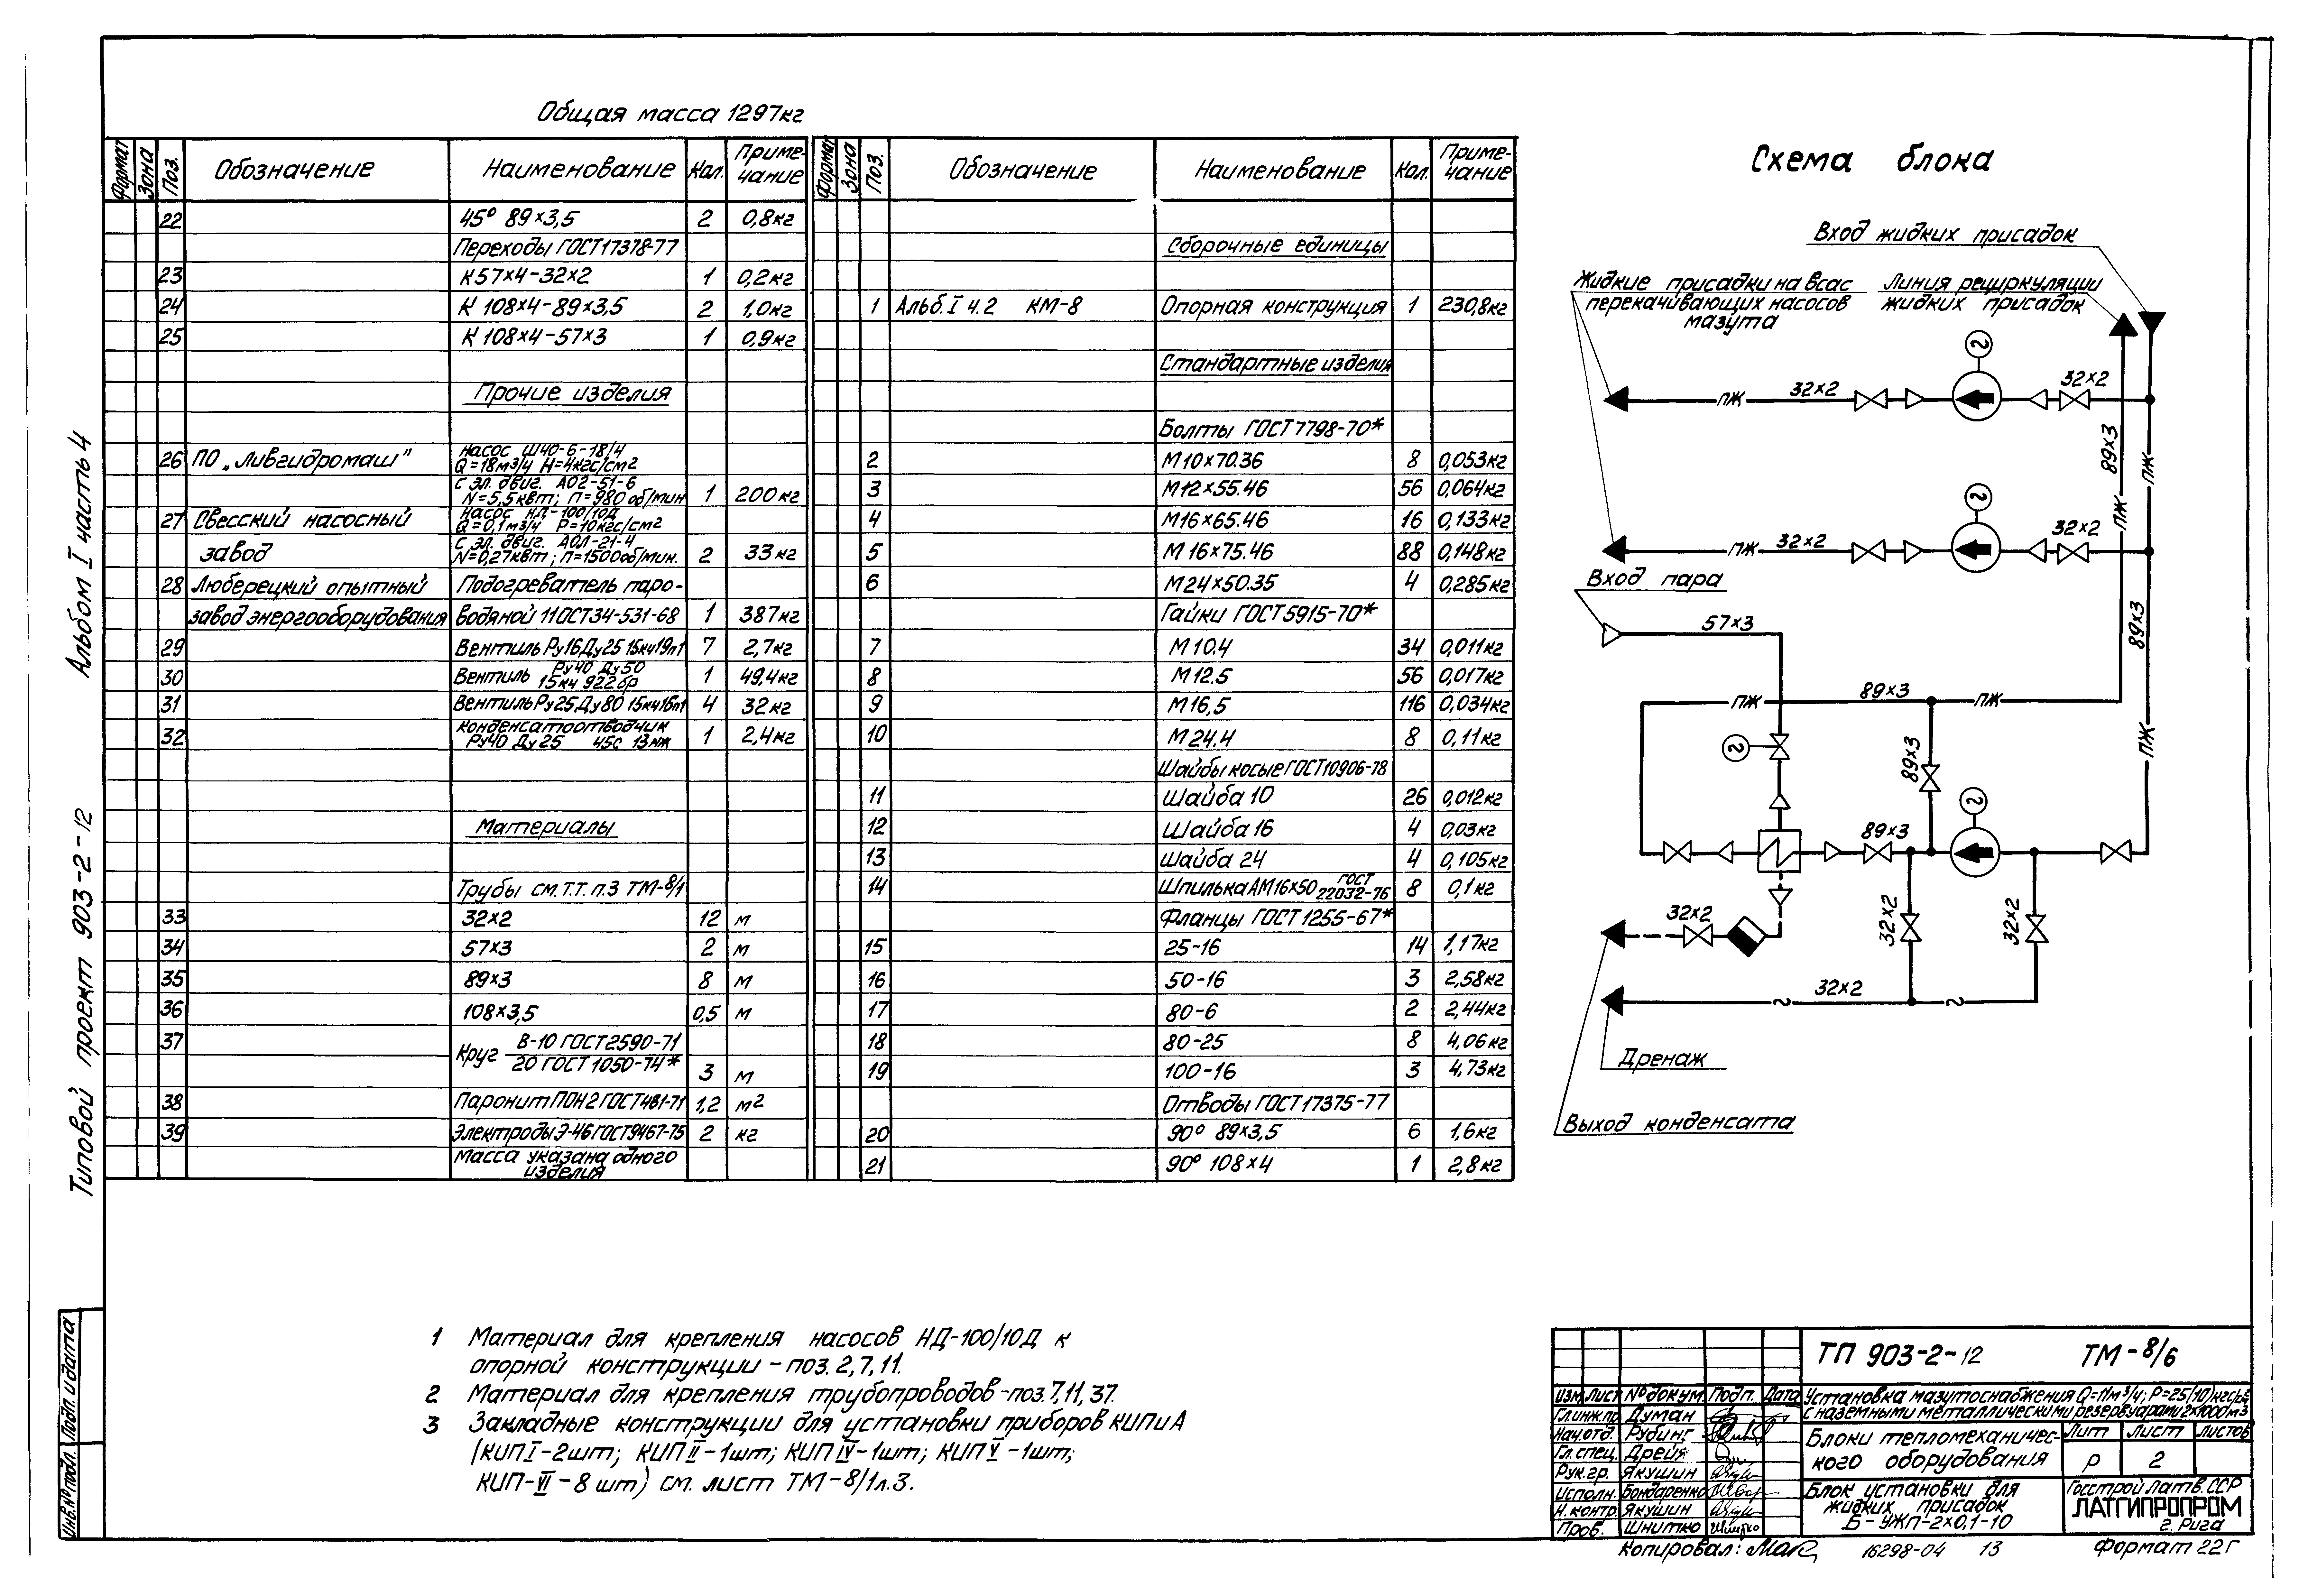 Общая масса 1297кг
Формат Зона Поз. Обозначение Наименование Кол. Примечание
22 45° 89×3,5 2 0,8кг
Переходы ГОСТ17378-77
23 К57×4-32×2 1 0,2кг
24 К 108×4-89×3,5 2 1,0кг
25 К 108×4-57×3 1 0,9кг
Прочие изделия
26 ПО „Ливгидромаш" насос Ш40-6-18/4
Q=18м³/ч Н=4кгс/см²
с эл. двиг. АО2-51-6
N=5,5квт; п=980 об/мин 1 200кг
27 Свесский насосный насос НД-100/10Д
Q=0,1м³/ч Р=10кгс/см²
завод с эл. двиг. АОЛ-21-4
N=0,27квт; п=1500об/мин. 2 33кг
28 Люберецкий опытный Подогреватель паро-
завод энергооборудования водяной 11ОСТ34-531-68 1 387кг
29 Вентиль Ру16 Ду25 15кч19п1 7 2,7кг
30 Вентиль Ру40 Ду50
15кч 922бр 1 49,4кг
31 Вентиль Ру25 Ду80 15кч16п1 4 32кг
32 конденсатоотводчик
Ру40 Ду25 45с 13нж 1 2,4кг
Материалы
Трубы см.т.т. п.3 ТМ-8/1
33 32×2 12 м
34 57×3 2 м
35 89×3 8 м
36 108×3,5 0,5 м
37 Круг В-10 ГОСТ2590-71
20 ГОСТ1050-74* 3 м
38 Паронит ПОН2 ГОСТ481-71 1,2 м²
39 Электроды Э-46 ГОСТ9467-75 2 кг
Масса указана одного
изделия
Формат Зона Поз. Обозначение Наименование Кол. Примечание
Сборочные единицы
1 Альб. I ч.2 КМ-8 Опорная конструкция 1 230,8кг
Стандартные изделия
Болты ГОСТ7798-70*
2 М10×70.36 8 0,053кг
3 М12×55.46 56 0,064кг
4 М16×65.46 16 0,133кг
5 М16×75.46 88 0,148кг
6 М24×50.35 4 0,285кг
Гайки ГОСТ5915-70*
7 М10.4 34 0,011кг
8 М12.5 56 0,017кг
9 М16,5 116 0,034кг
10 М24.4 8 0,11кг
Шайбы косые ГОСТ10906-78
11 Шайба 10 26 0,012кг
12 Шайба 16 4 0,03кг
13 Шайба 24 4 0,105кг
14 Шпилька АМ16×50 ГОСТ
22032-76 8 0,1кг
Фланцы ГОСТ1255-67*
15 25-16 14 1,17кг
16 50-16 3 2,58кг
17 80-6 2 2,44кг
18 80-25 8 4,06кг
19 100-16 3 4,73кг
Отводы ГОСТ17375-77
20 90° 89×3,5 6 1,6кг
21 90° 108×4 1 2,8кг
Схема блока
Вход жидких присадок
Жидкие присадки на всас
перекачивающих насосов
мазута
Линия рециркуляции
жидких присадок
ПЖ 32×2 32×2
89×3
ПЖ
ПЖ
ПЖ 32×2 32×2
Вход пара
57×3
89×3
ПЖ 89×3 ПЖ
ПЖ
89×3
89×3
32×2
32×2
32×2
32×2
Дренаж
Выход конденсата
1 Материал для крепления насосов НД-100/10Д к
опорной конструкции - поз. 2,7,11.
2 Материал для крепления трубопроводов-поз.7,11,37.
3 Закладные конструкции для установки приборов КИПиА
(КИП I-2шт; КИП II-1шт; КИП IV-1шт; КИП V-1шт;
КИП-VI-8 шт) см. лист ТМ-8/1л.3.
Типовой проект 903-2-12 Альбом I часть 4
Инв.№ подл. Подп. и дата
ТП 903-2-12 ТМ-8/6
Изм. Лист № докум. Подп. Дата
Установка мазутоснабжения Q=11м³/ч; Р=25(10)кгс/см²
с наземными металлическими резервуарами 2×1000м3
Гл.инж.пр. Думан
Нач.отд. Рудинг
Гл.спец. Дрейя
Рук.гр. Якушин
Исполн. Бондаренко
Н.контр. Якушин
Проб. Шнитко
Блоки тепломеханичес-
кого оборудования
Лит Лист Листов
Р 2
Блок установки для
жидких присадок
Б-УЖП-2×0,1-10
Госстрой Латв.ССР
ЛАТГИПРОПРОМ
г. Рига
Копировал: 16298-04 13 Формат 22Г